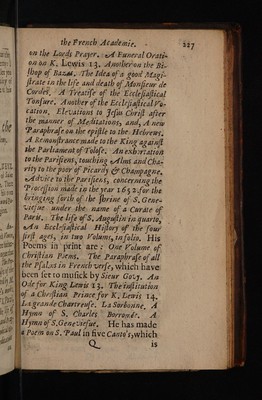 the French Academie. 227
on the Lords Prayer. A Funeral Orati-
on on K. Lewis 13. Another on the Bi-
shop of Bazas. The Idea of a good Magi-
strate in the life and death of Monsieur de
Cordes. A Treatise of the Ecclesiastical
Tonsure. Another of the Ecclesiastical Vo-
cation, Elevations to Jesus Christ after
the manner of Meditations, and, A new
Paraphrase on the epistle to the Hebrews.
A Remonstrance made to the King against
the Parliament of Tolose. An exhortation
to the Parisiens, touching Alms and Cha-
rity to the poor of Picardy & Champagne.
Advice to the Parisiens, concerning the
Procession made in the year 1652. for the
bringing forth of the shrine of S. Gene-
viefue under the name of a Curate of
Paris. The life of S. Augustin in quarto,
An Ecclesiastical History of the four
first ages, in two Volums, in folio. His
Poems in print are: One Volume of
Christian Poems. The Paraphrase of all
the Psalms in French verse, which have
been set to musick by Sieur Govy. An
Ode for King Lewis 13. The institution
of a Christian Prince for K. Lewis 14.
La grande Chartreuse. La Sorbonne. A
Hymn of S. Charles Borromée. A
Hymn of S. Geneviefue. He has made
a Poem on S. Paul in five Canto's, which
Q is